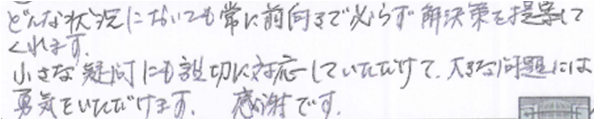 どんな状況においても常に前向きで必らず解決策を提案して
くれます。
小さな疑問にも親切に対応していただけて、大きな問題には
勇気をいただけます。 感謝です。